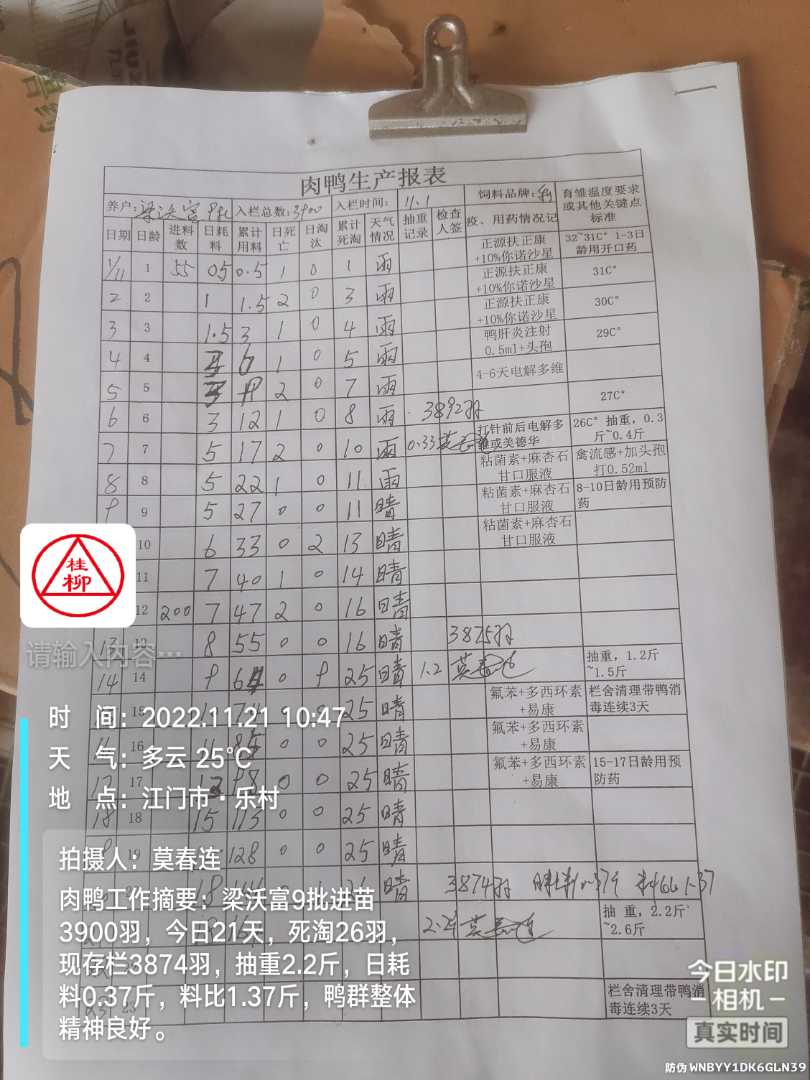 肉鸭生产报表
养户:梁沃富9批 入栏总数:3900 入栏时间: 11.1 饲料品牌: 育雏温度要求或其他关键点标准
日期 日龄 进料数 日耗料 累计用料 日死亡 日淘汰 累计死淘 天气情况 抽重记录 检查人签 疫、用药情况记
1/11 1 55 0.5 0.5 1 0 1 雨 正源扶正康+10%你诺沙星 32~31C° 1-3日龄用开口药
2 2 1 1.5 2 0 3 雨 正源扶正康+10%你诺沙星 31C°
3 3 1.5 3 1 0 4 雨 正源扶正康+10%你诺沙星 30C°
4 4 3 6 1 0 5 雨 鸭肝炎注射0.5ml+头孢 29C°
5 5 3 9 2 0 7 雨 4-6天电解多维
6 6 3 12 1 0 8 雨 3892羽 27C°
7 7 5 17 2 0 10 雨 0.33 莫春连 打针前后电解多维或美德华 26C° 抽重，0.3斤~0.4斤
8 8 5 22 1 0 11 雨 粘菌素+麻杏石甘口服液 禽流感+加头孢打0.52ml
9 9 5 27 0 0 11 晴 粘菌素+麻杏石甘口服液 8-10日龄用预防药
10 6 33 0 2 13 晴 粘菌素+麻杏石甘口服液
11 7 40 1 0 14 晴
12 200 7 47 2 0 16 晴
13 13 8 55 0 0 16 晴 3875羽
14 14 9 64 0 9 25 晴 1.2 莫春连 抽重，1.2斤~1.5斤
15 0 25 晴 氟苯+多西环素+易康 栏舍清理带鸭消毒连续3天
0 0 25 晴 氟苯+多西环素+易康
17 17 98 0 0 25 晴 氟苯+多西环素+易康 15-17日龄用预防药
18 18 15 113 0 0 25 晴
19 128 0 0 25 晴
18 晴 3874羽
2.2斤 莫春连 抽 重，2.2斤~2.6斤
栏舍清理带鸭消毒连续3天
桂柳
请输入内容…
时 间：2022.11.21 10:47
天 气：多云 25℃
地 点：江门市·乐村
拍摄人：莫春连
肉鸭工作摘要：梁沃富9批进苗
3900羽，今日21天，死淘26羽，
现存栏3874羽，抽重2.2斤，日耗
料0.37斤，料比1.37斤，鸭群整体
精神良好。
今日水印
相机
真实时间
防伪 WNBYY1DK6GLN39